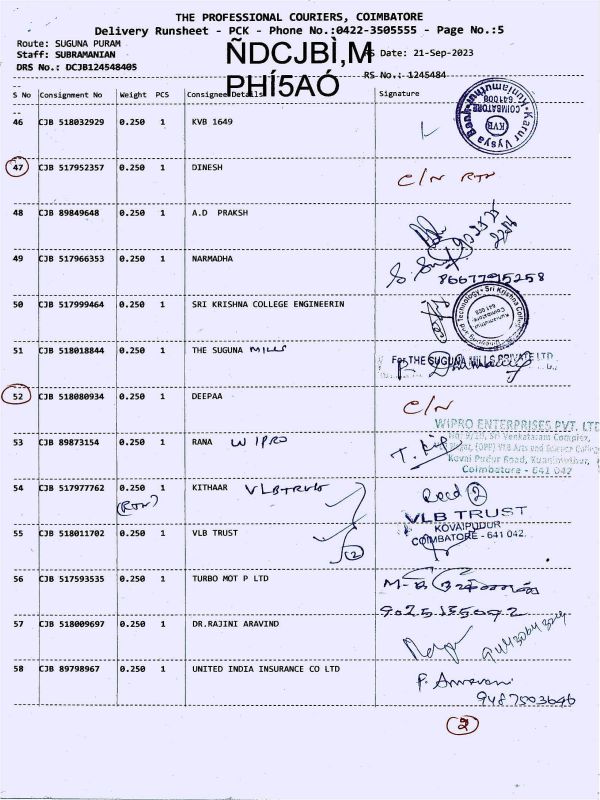 THE PROFESSIONAL COURIERS, COIMBATORE
Delivery Runsheet - PCK - Phone No.:0422-3505555 - Page No.:5
Route: SUGUNA PURAM
Staff: SUBRAMANIAN
RS Date: 21-Sep-2023
DRS No.: DCJB124548405
ÑDCJBÌ‚M
PHÍ5AÓ
RS No.: 1245484
S No Consignment No Weight PCS Consignee Details Signature
46 CJB 518032929 0.250 1 KVB 1649
Karur Vysya Bank
KVB
COIMBATORE
47 CJB 517952357 0.250 1 DINESH C/N RTN
48 CJB 89849648 0.250 1 A.D PRAKSH
49 CJB 517966353 0.250 1 NARMADHA
8667795258
50 CJB 517999464 0.250 1 SRI KRISHNA COLLEGE ENGINEERIN
51 CJB 518018844 0.250 1 THE SUGUNA MILLS
For THE SUGUNA MILLS PRIVATE LTD
52 CJB 518080934 0.250 1 DEEPAA C/N
WIPRO ENTERPRISES PVT. LTD
Sri Venkataram Complex,
(OPP) VLB Arts and Science College
Kovai Pudur Road, Kuniamuthur,
Coimbatore - 641 042
53 CJB 89873154 0.250 1 RANA WIPRO
54 CJB 517977762 0.250 1 KITHAAR VLBTRUST Recd 2
(RTN)
VLB TRUST
KOVAIPUDUR
COIMBATORE - 641 042.
55 CJB 518011702 0.250 1 VLB TRUST
(2)
56 CJB 517593535 0.250 1 TURBO MOT P LTD
9025155092
57 CJB 518009697 0.250 1 DR.RAJINI ARAVIND
58 CJB 89798967 0.250 1 UNITED INDIA INSURANCE CO LTD
9487503646
2